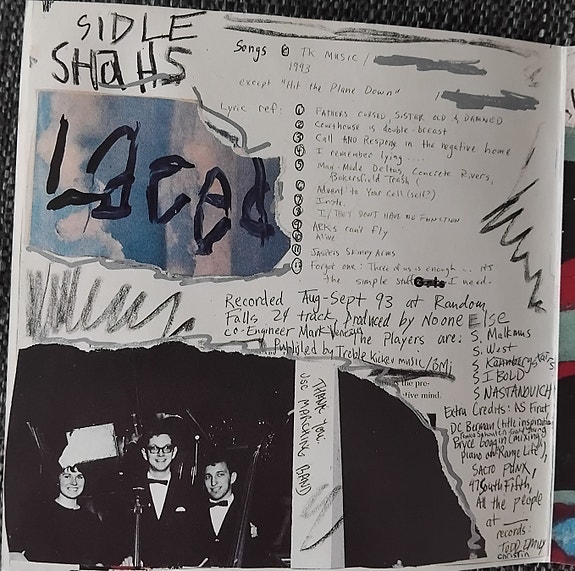 SIDLE
SHaHS
Laced
Songs © TK Music /
1993
except "Hit the Plane Down" /
Lyric ref:
1 FATHERS CURSED, SISTER OLD & DAMNED
2 Courthouse is double-breast
3 Call AND Response in the negative home
4 I remember lying....
5 Man-Made Deltas, Concrete Rivers,
Bakersfield Trash (
6 Advent to Your Cell (self?)
7 Instr.
8 I/THEY DON'T HAVE NO FUNCTION
9 ARKs can't fly
10 Alive
11 Jaspers Skinny Arms
12 Forgot one: Three of us is enough ... it's
the simple stuff I need.
Recorded Aug-Sept 93 at Random
Falls 24 track, produced by No one Else
co-Engineer Mark Venezia The Players are:
Published by Treble Kicker music/BMI
S. Malkmus
S. West
S
S IBOLD
S NASTANOVICH
the pre-
tive mind.
THANK YOU:
USC MARCHING BAND
Extra Credits: NS First
DC Berman (title inspiration
Bryce Goggin (mixing,
piano on "Range Life"),
SACTO PUNX,
47 South Fifth,
All the people
at ___
records.